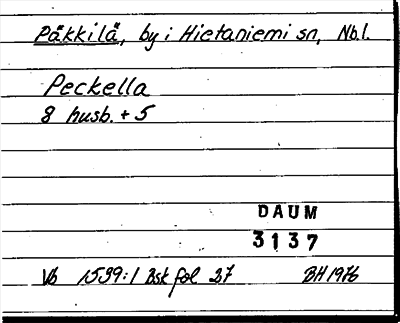 Päkkilä, by i Hietaniemi sn, Nbl.
Peckella
8 husb. + 5
DAUM
3137
Vb 1539:1 Bsk fol 37 BH 1976